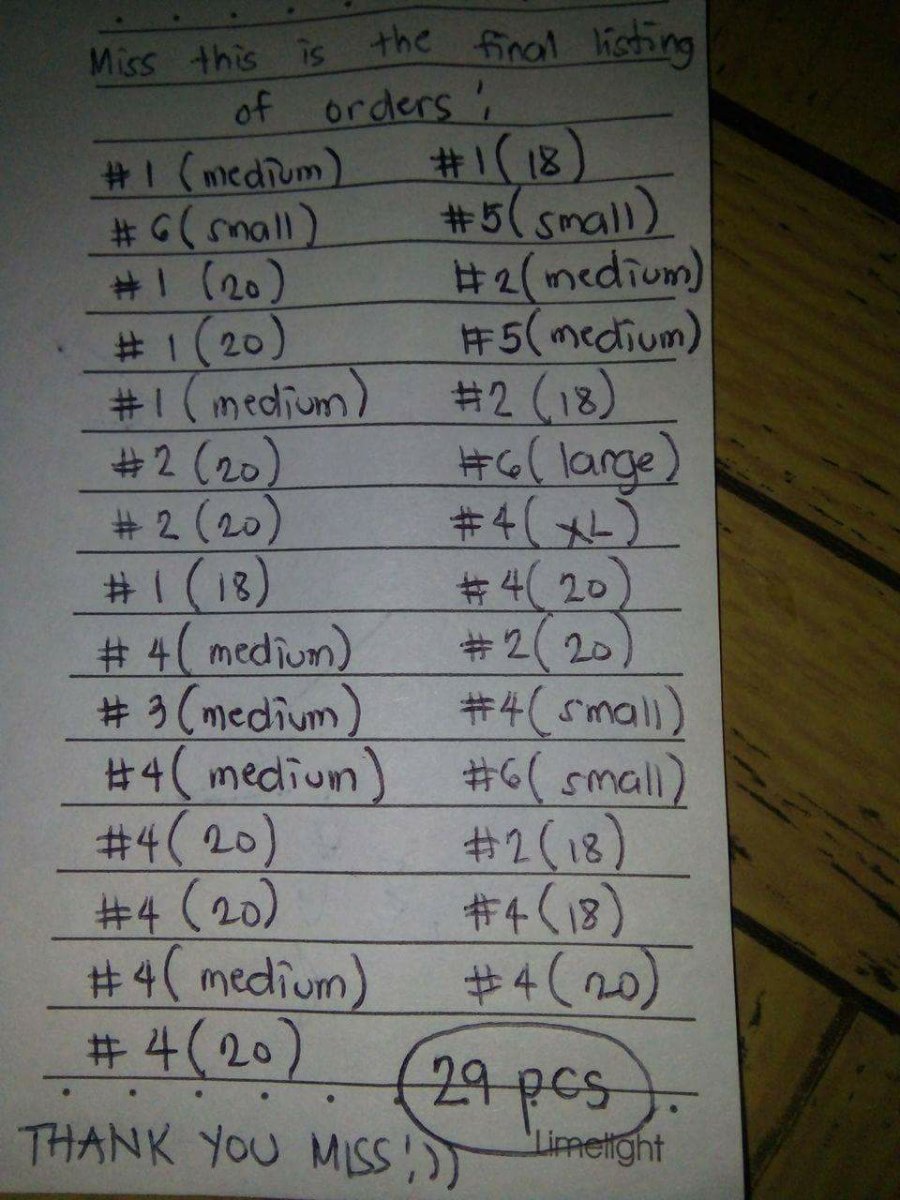 Miss this is the final listing
of orders!
#1 (medium) #1(18)
#6(small) #5(small)
#1 (20) #2(medium)
#1(20) #5(medium)
#1(medium) #2(18)
#2(20) #6(large)
#2(20) #4(XL)
#1(18) #4(20)
#4(medium) #2(20)
#3(medium) #4(small)
#4(medium) #6(small)
#4(20) #2(18)
#4(20) #4(18)
#4(medium) #4(20)
#4(20) 29 pcs
THANK YOU MISS!;)) Limelight